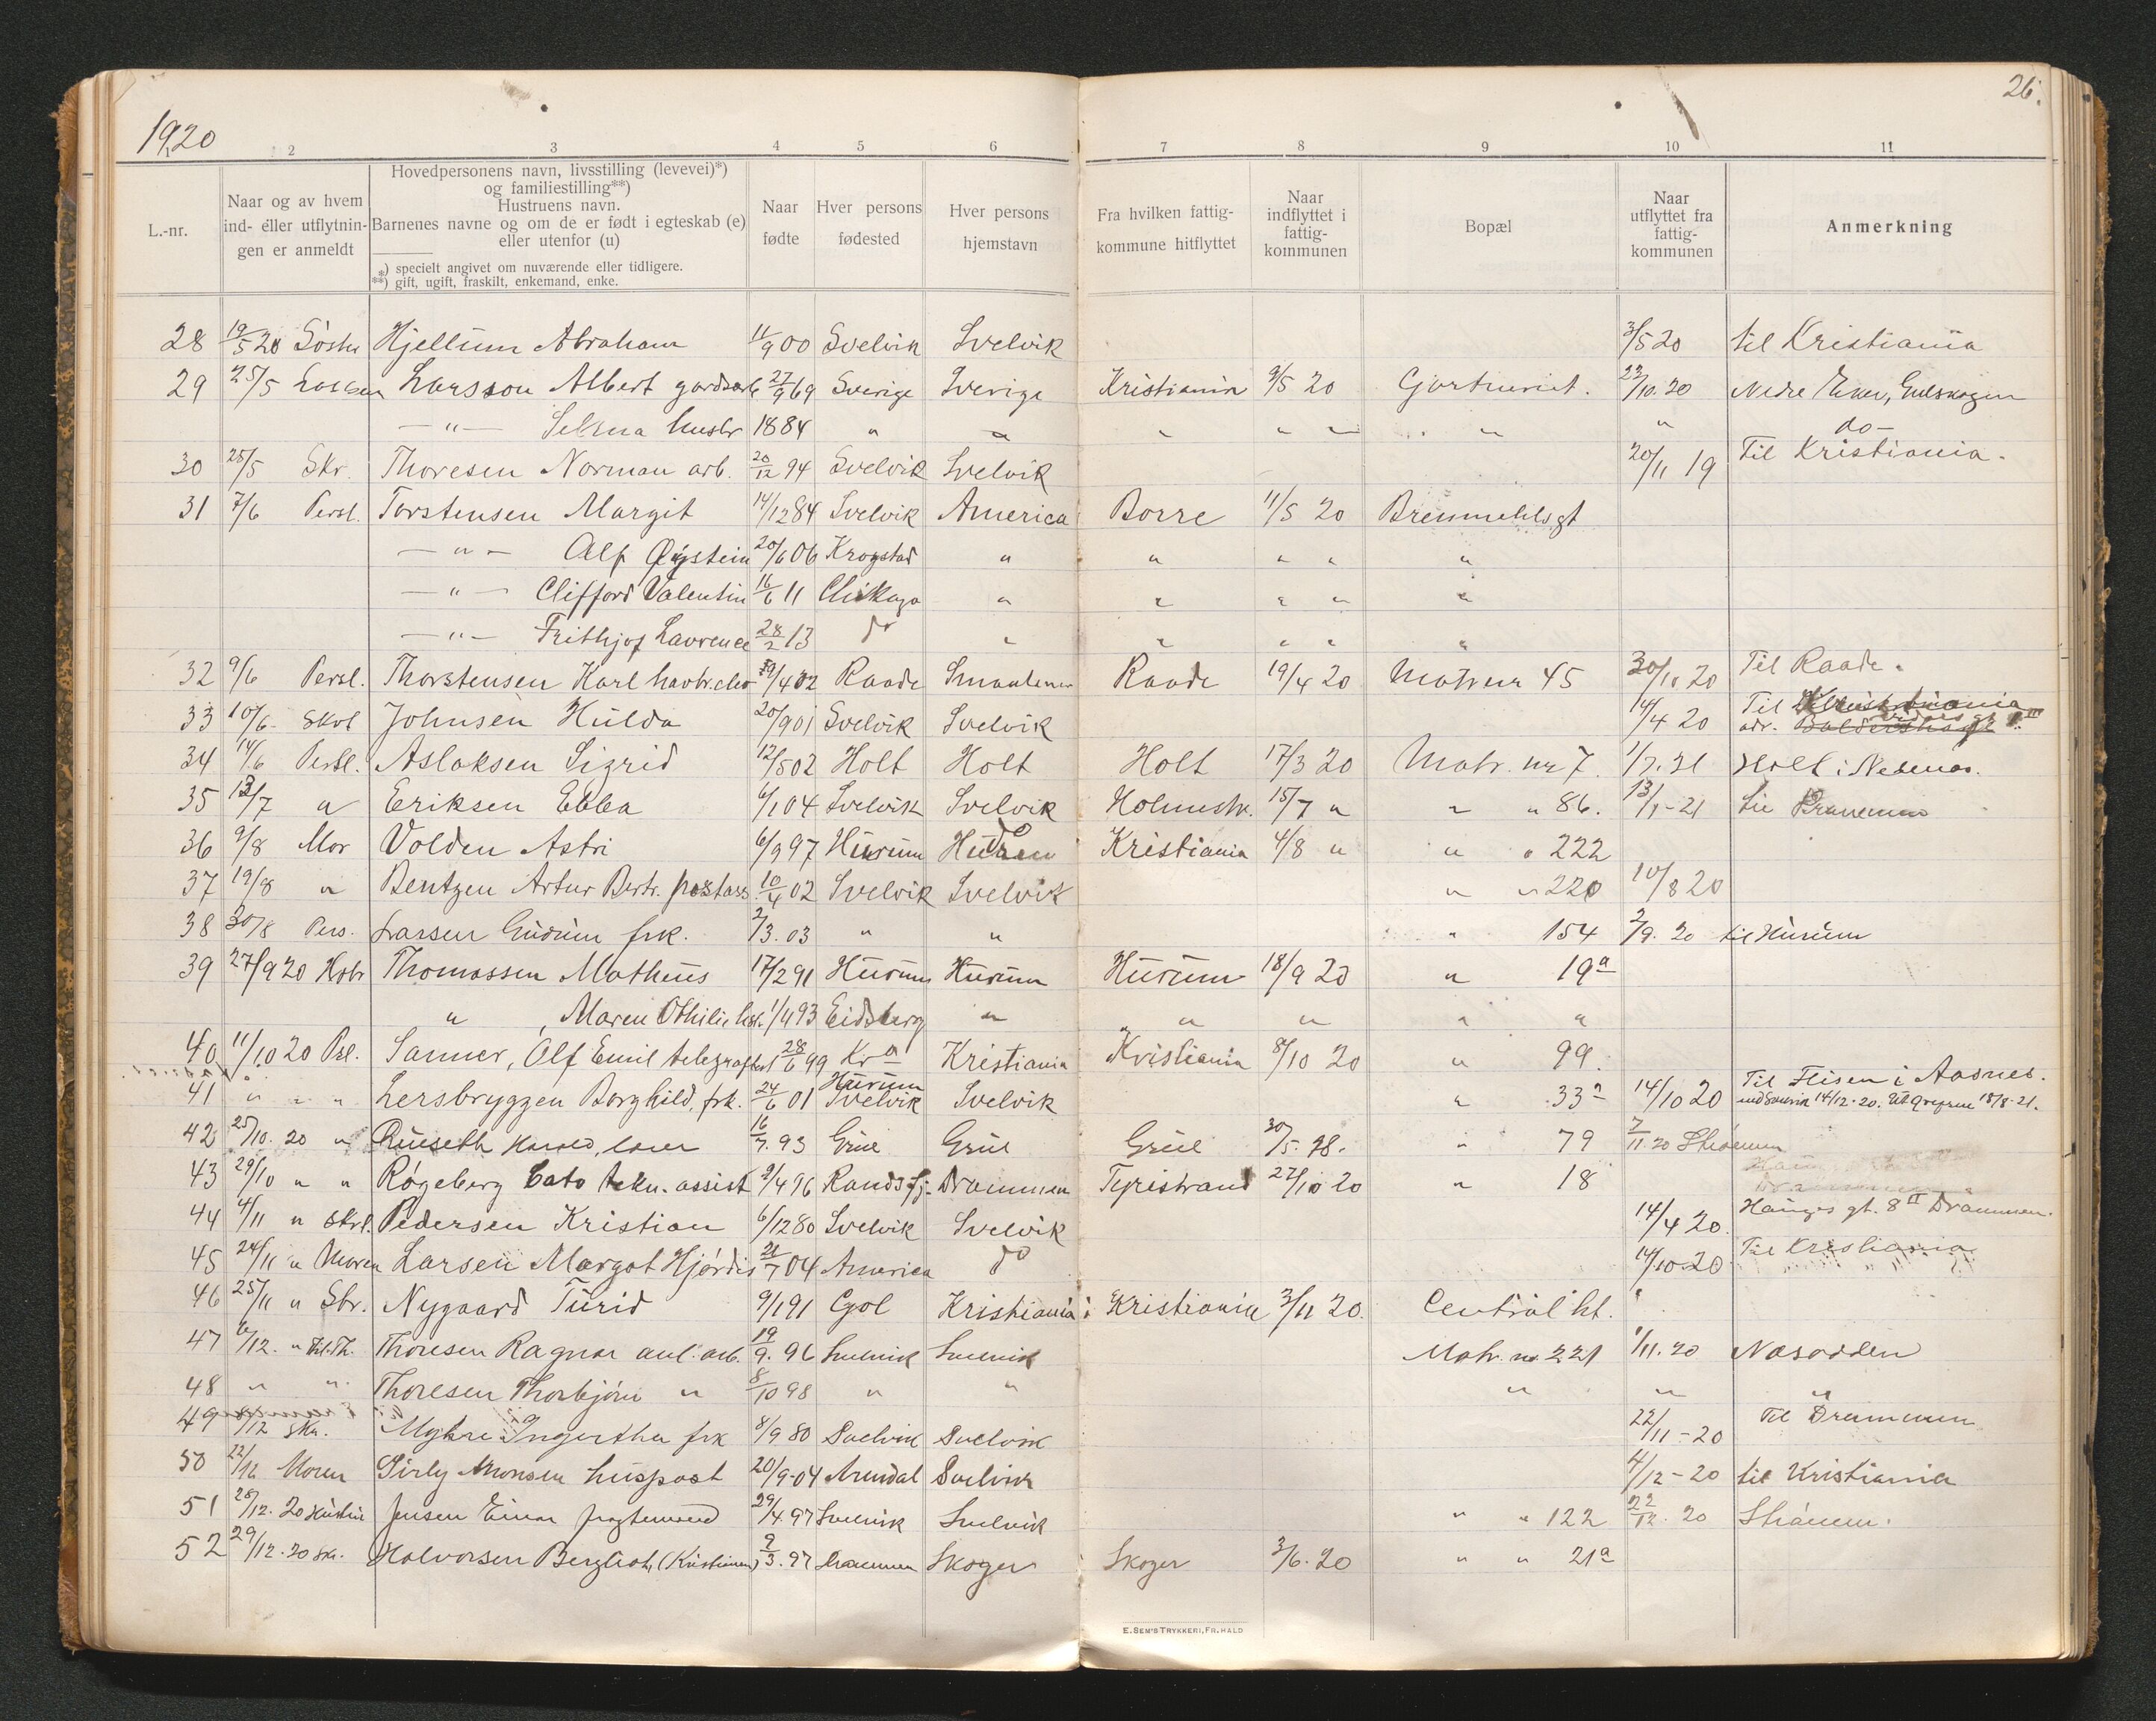 1920
26.
2 3 4 5 6 7 8 9 10 11
L.-nr.
Naar og av hvem ind- eller utflytningen er anmeldt
Hovedpersonens navn, livsstilling (levevei)*)
og familiestilling**)
Hustruens navn.
Barnenes navne og om de er født i egteskab (e)
eller utenfor (u)
*) specielt angivet om nuværende eller tidligere.
**) gift, ugift, fraskilt, enkemand, enke.
Naar fødte
Hver persons fødested
Hver persons hjemstavn
Fra hvilken fattigkommune hitflyttet
Naar indflyttet i fattigkommunen
Bopæl
Naar utflyttet fra fattigkommunen
Anmerkning
28 19/5 20 Hjellum Abraham 11/9 00 Svelvik Svelvik 3/5 20 til Kristiania
29 25/5 Larsson Albert gardsarb 27/9 69 Sverige Sverige Kristiania 9/5 20 Gartneriet. 22/10.20 Nedre Eker, Gulskogen
— " — Selma husbr 1884 " " " " " " " do —
30 28/5 Skr. Thoresen Norman arb. 20/12 94 Svelvik Svelvik 20/11 19 Til Kristiania.
31 7/6 Persl. Torstensen Margit 14/12 84 Svelvik America Borre 11/5 20
— " — Alf Øystein 20/6 06 Krogstad " " " " "
— " — Clifford Valentin 16/6 11 Chikago " " " " "
— " — Frithjof Lavrence 28/2 13 do " " " " "
32 9/6 Persl. Thorstensen Karl 02 Raade Raade 19/4 20 Matr nr 45 30/10 20 Til Raade.
33 10/6 Skol Johnsen Hulda 20/9 01 Svelvik Svelvik 14/4 20 Til Kristiania
adr.
34 14/6 Persl. Aslaksen Sigrid 12/5 02 Holt Holt Holt 17/3 20 Matr. nr 7. 1/7.21 Holt i Nedenæs.
35 13/7 " Eriksen Ebba 6/1 04 Svelvik Svelvik Holmestr. 15/7 " " " 86. 13/1-21 til Drammen
36 9/8 Mor Volden Astri 6/9 97 Hurum Hurum Kristiania 4/8 " " " 222
37 19/8 " Bentzen Artur Bertr. postass. 10/4 02 Svelvik Svelvik " " 220 10/8 20
38 30/8 Pers. Larsen Gudrun frk. 2/3.03 " " " 154 2/9.20 til Hurum
39 27/9 20 Hsbr Thomassen Matheus 17/2 91 Hurum Hurum Hurum 18/9 20 " 19a
" , Maren Othilie hst. 1/4 93 Eidsberg " " " " "
40 11/10 20 Psl. Sanner, Alf Emil telegrafbest 28/6 99 Kra Kristiania Kristiania 8/10 20 " 99.
41 " " " Lersbryggen Borghild, frk. 24/6 01 Hurum Svelvik Svelvik " 33a 14/10 20 Til Flisen i Aasnes.
14/12-20. 18/8-21.
42 25/10.20 " 16/7.93 Grue Grue Grue 30/5.18. " 79 7/11.20 Strömm
43 29/10 " " Røgeberg Cato tekn. assist 9/4 96 Randsfj. Drammen Tyristrand 27/10 20 " 18
44 4/11 " Skrl. Pedersen Kristian 6/12 80 Svelvik Svelvik 14/4 20. Hauges gt. 8 II Drammen.
45 24/11 " Moren Larsen Margot Hjørdis 21/7 04 America do 14/10 20 Til Kristiania
46 25/11 " Sbr. Nygaard Turid 9/1 91 Gol Kristiania Kristiania 3/11 20. Central ht.
47 6/12. " Thoresen Ragnar anl. arb. 19/9. 96 Svelvik Svelvik Matr. nr. 221 1/11.20 Næsodden
48 " " Thoresen Thorbjørn " 8/10 98 " " " " "
49 /12 Skr. Myhre Ingertha frk 8/9 80 Svelvik Svelvik 22/11-20 Til Drammen
50 22/12 Moren Sirly Monsen huspost 20/9-04 Arendal Svelvik 4/12-20 til Kristiania
51 28/12.20 Hustru Jensen Einar fragtemand 29/4.97 Svelvik Svelvik " " 122 22/12.20 Strömm.
52 29/12.20 Skr. Halvorsen Bergliot, 2/3.97 Drammen Skoger Skoger 3/6.20 " " 21a
E. SEM'S TRYKKERI, FR. HALD